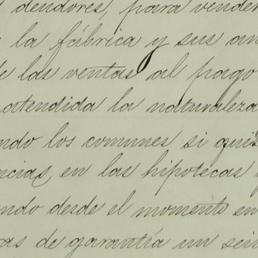 deudores, para vender
la fábrica y sus an
de las ventas al pago
atendida la naturaleza
ndo los comunes si quis
ncias en las hipotecas
endo desde el momento en
as de garantía un sein